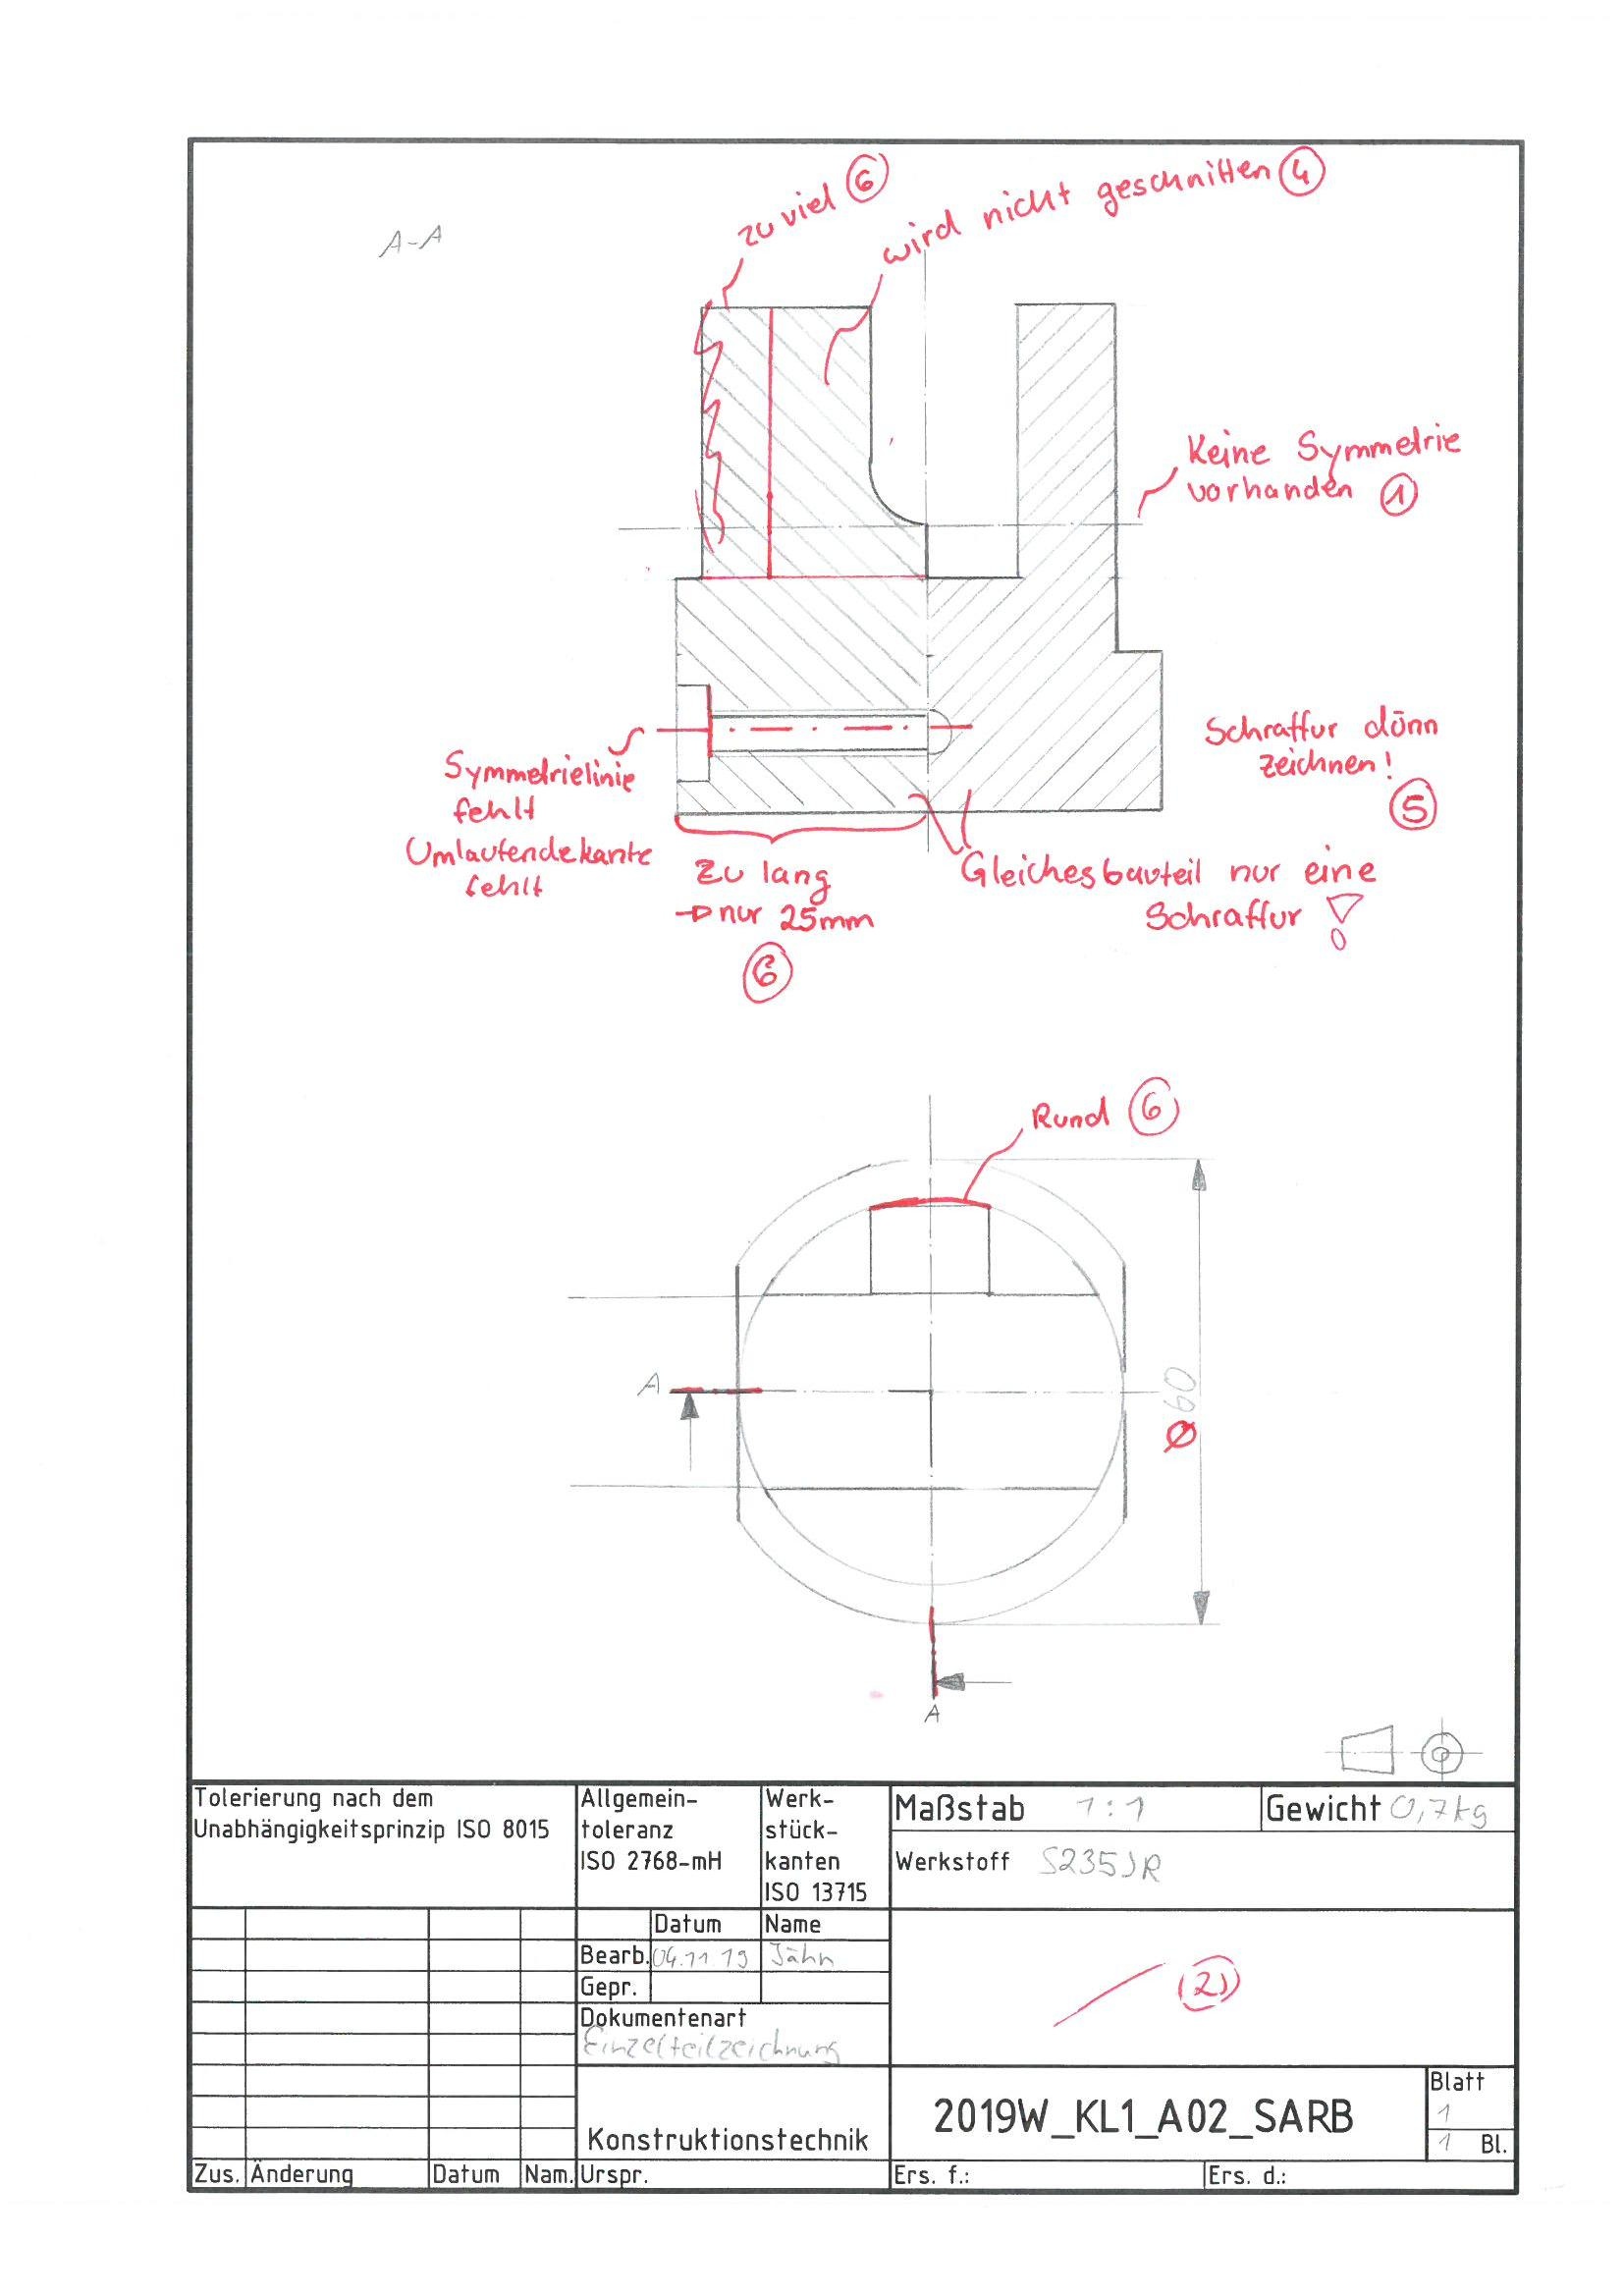 zu viel 6
wird nicht geschnitten 4
A-A
Keine Symmetrie
vorhanden 1
Schraffur dünn
zeichnen!
5
Symmetrielinie
fehlt
Umlaufendekante
fehlt
zu lang
→ nur 25mm
6
Gleichesbauteil nur eine
Schraffur !
Rund 6
A
Ø60
A
Tolerierung nach dem
Unabhängigkeitsprinzip ISO 8015
Allgemein-
toleranz
ISO 2768-mH
Werk-
stück-
kanten
ISO 13715
Maßstab 1:1
Gewicht 0,7kg
Werkstoff S235JR
Datum Name
Bearb. 04.11.19 Jähn
Gepr.
Dokumentenart
Einzelteilzeichnung
(2)
Konstruktionstechnik
2019W_KL1_A02_SARB
Blatt
1
1 Bl.
Zus. Änderung Datum Nam. Urspr. Ers. f.: Ers. d.: